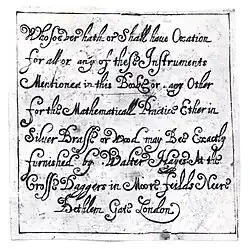 Whosoever hath or Shall have Ocation
for all or any of these Instruments
Mentioned in this Booke or any Other
for the Mathematicall Practice Ether in
Silver Brasse or Wood may Bee Exactly
furnished by Walter Hayes At the
Crosse Daggers in Moore Fields Neere
Bethlem Gate London